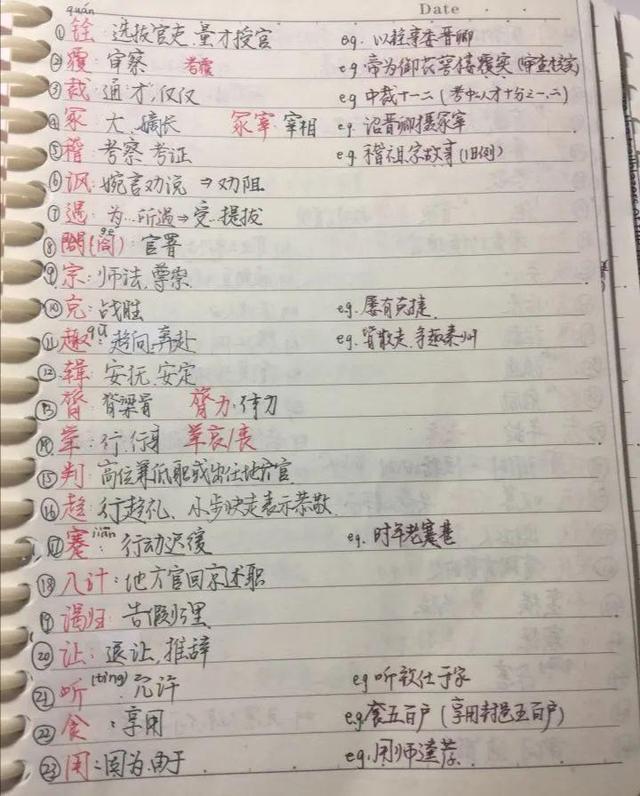 quán Date
①铨:选拔官吏,量才授官 eg. 以铨事委晋卿
②覆:审察 考覆 eg 帝为御衣箬缕覆实(审查核实)
③裁:通"才,仅仅 eg 中裁十一二(考中人才十分之一、二)
④冢 大、嫡长 冢宰:宰相 eg 诏晋卿摄冢宰
⑤稽 考察 考证 eg 稽祖宗故事(旧例)
⑥讽:婉言劝说 ⇒劝阻
⑦遇:为…所遇⇒受…提拔
⑧閤(阁)gé:官署
⑨宗:师法,尊崇
⑩克:战胜 eg.屡有克捷
⑪趣qū:趋向,奔赴 eg.皆散走、争趣秦州
⑫辑 安抚,安定
⑬膂 脊梁骨 膂力:体力
⑭ 行,行身
⑮判 高位兼低职或出任地方官
⑯趋:行趋礼、小步快走表示恭敬
⑰蹇jiǎn: 行动迟缓 eg. 时年老蹇甚
⑱入计:地方官回京述职
⑲谒归:告假归里
⑳让:退让,推辞
㉑听(tìng):允许 eg 听致仕于家
㉒食:享用 eg食五百户(享用封邑五百户)
㉓用:因为.由于 eg.用师達荐.